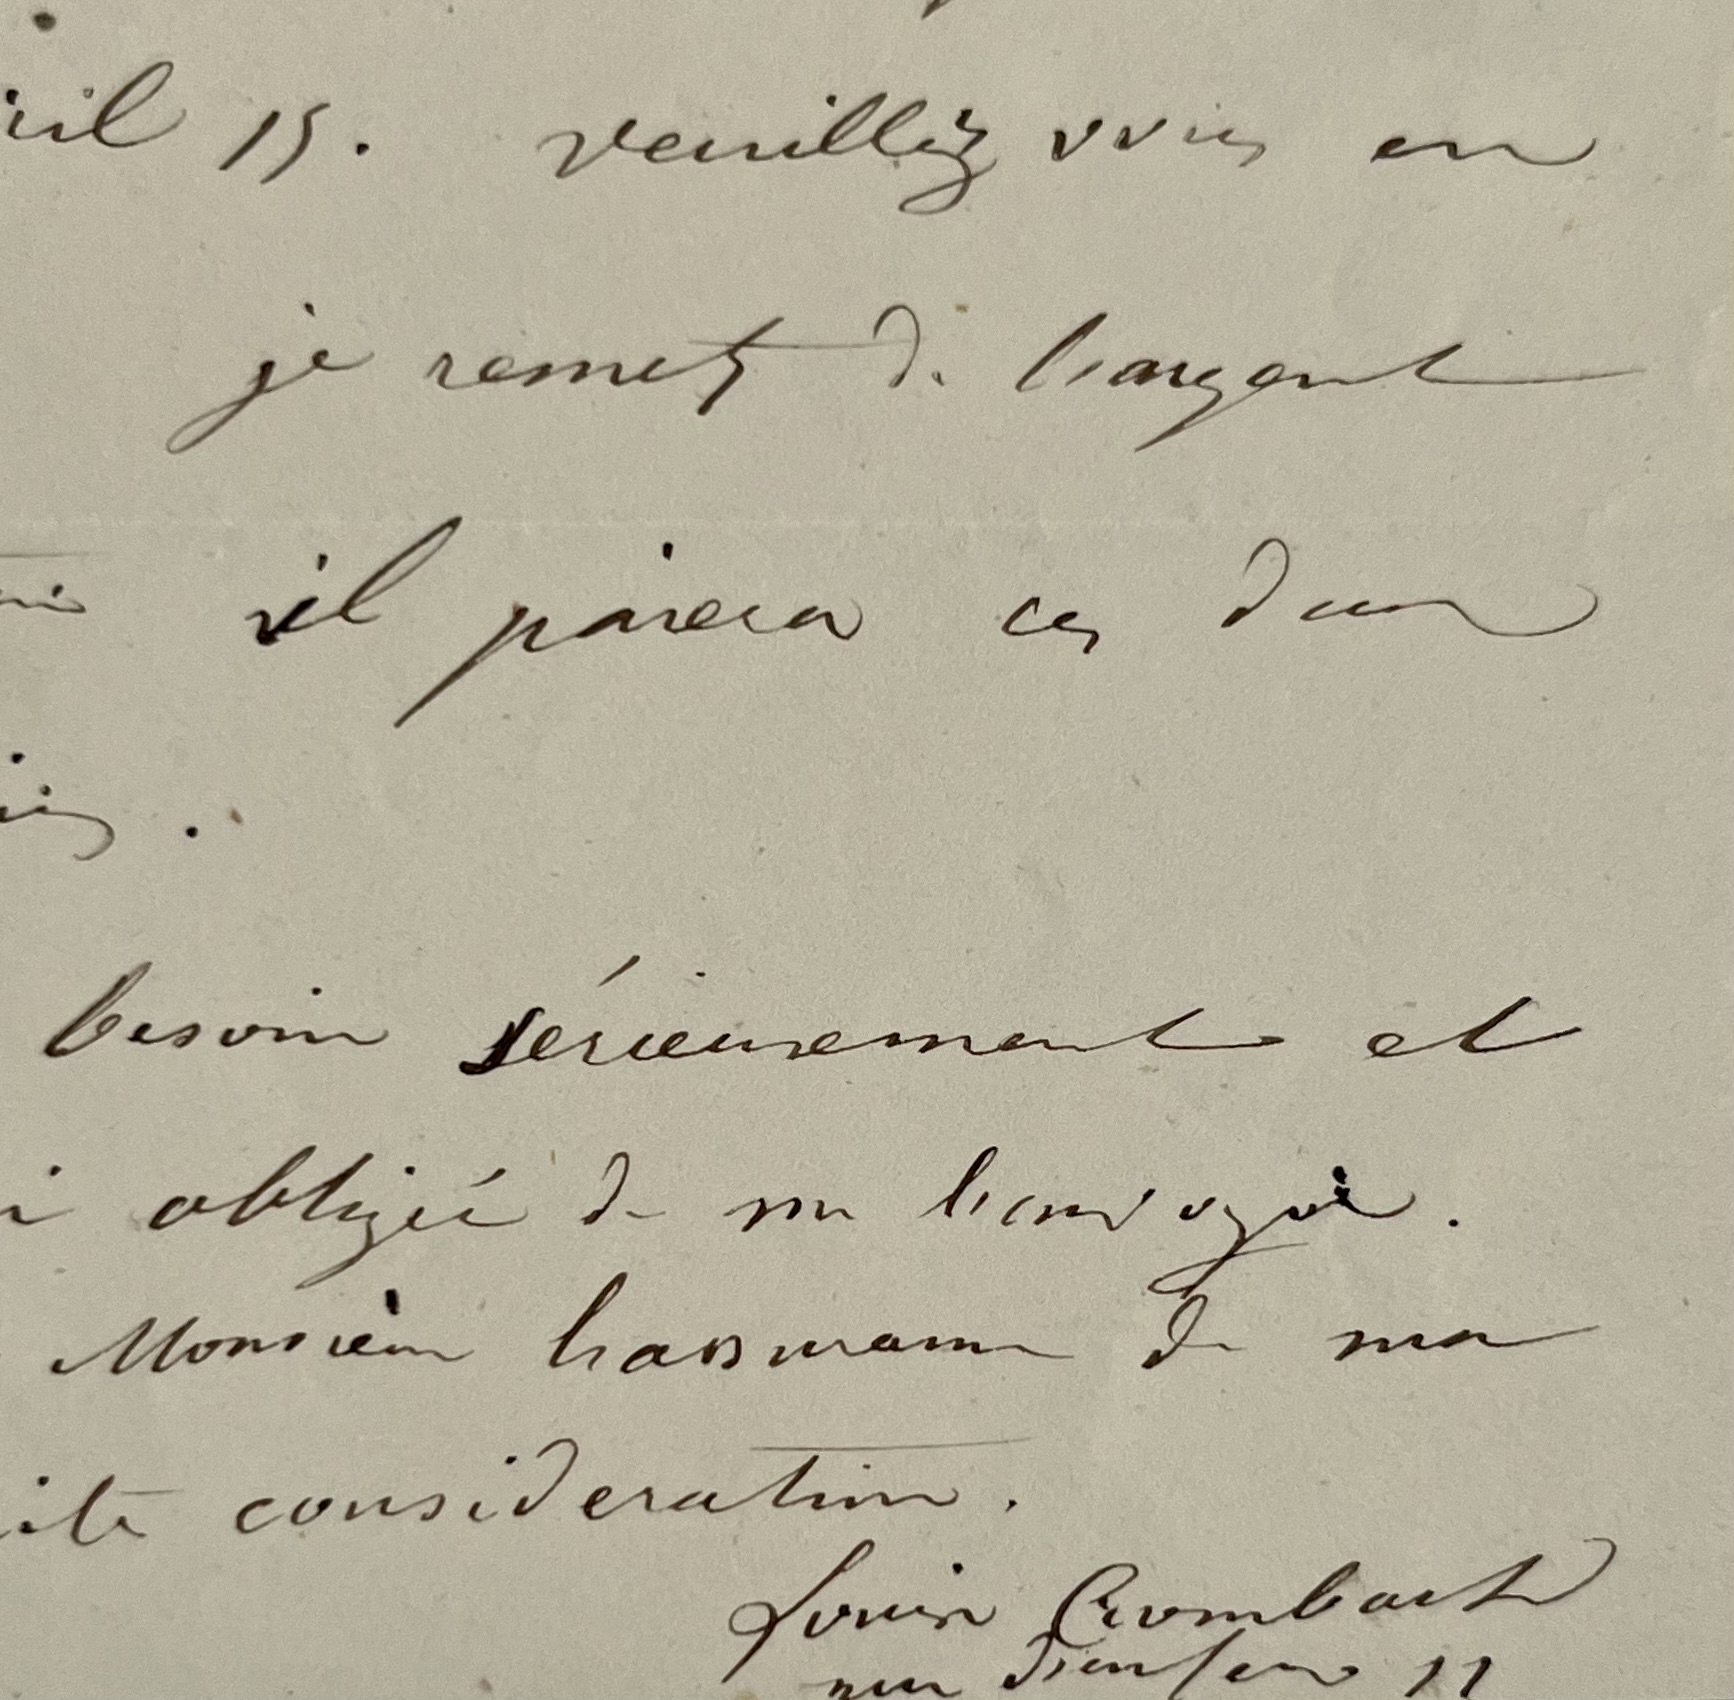 il 15. veuillez vous en
je remets de l'argent
il paiera ces deux
besoin sérieusement et
obligée de me l'envoyer.
Monsieur hausmann de ma
consideration.
Louis Crombach
rue 11